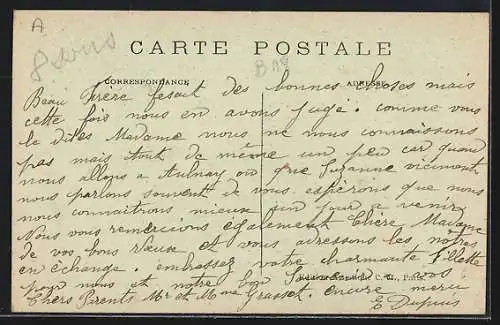 A
8 sous
CARTE POSTALE
B 18
CORRESPONDANCE
ADRESSE
Beau Frère fesait des bonnes choses mais
cette fois nous en avons jugé. comme vous
le dites Madame nous ne nous connaissons
pas mais tout de même un peu car quand
nous allons a Aulnay ou que Suzanne viennent
nous parlons souvent de vous. espérons que nous
nous connaitrons mieux un jour a venir
Nous vous remercions également Chère Madame
de vos bons vœux et vous adressons les nôtres
en échange. embrassez votre charmante fillette
pour nous et notre bon
Chers Parents Mr et Mme Grasset. encore merci
E Dupuis